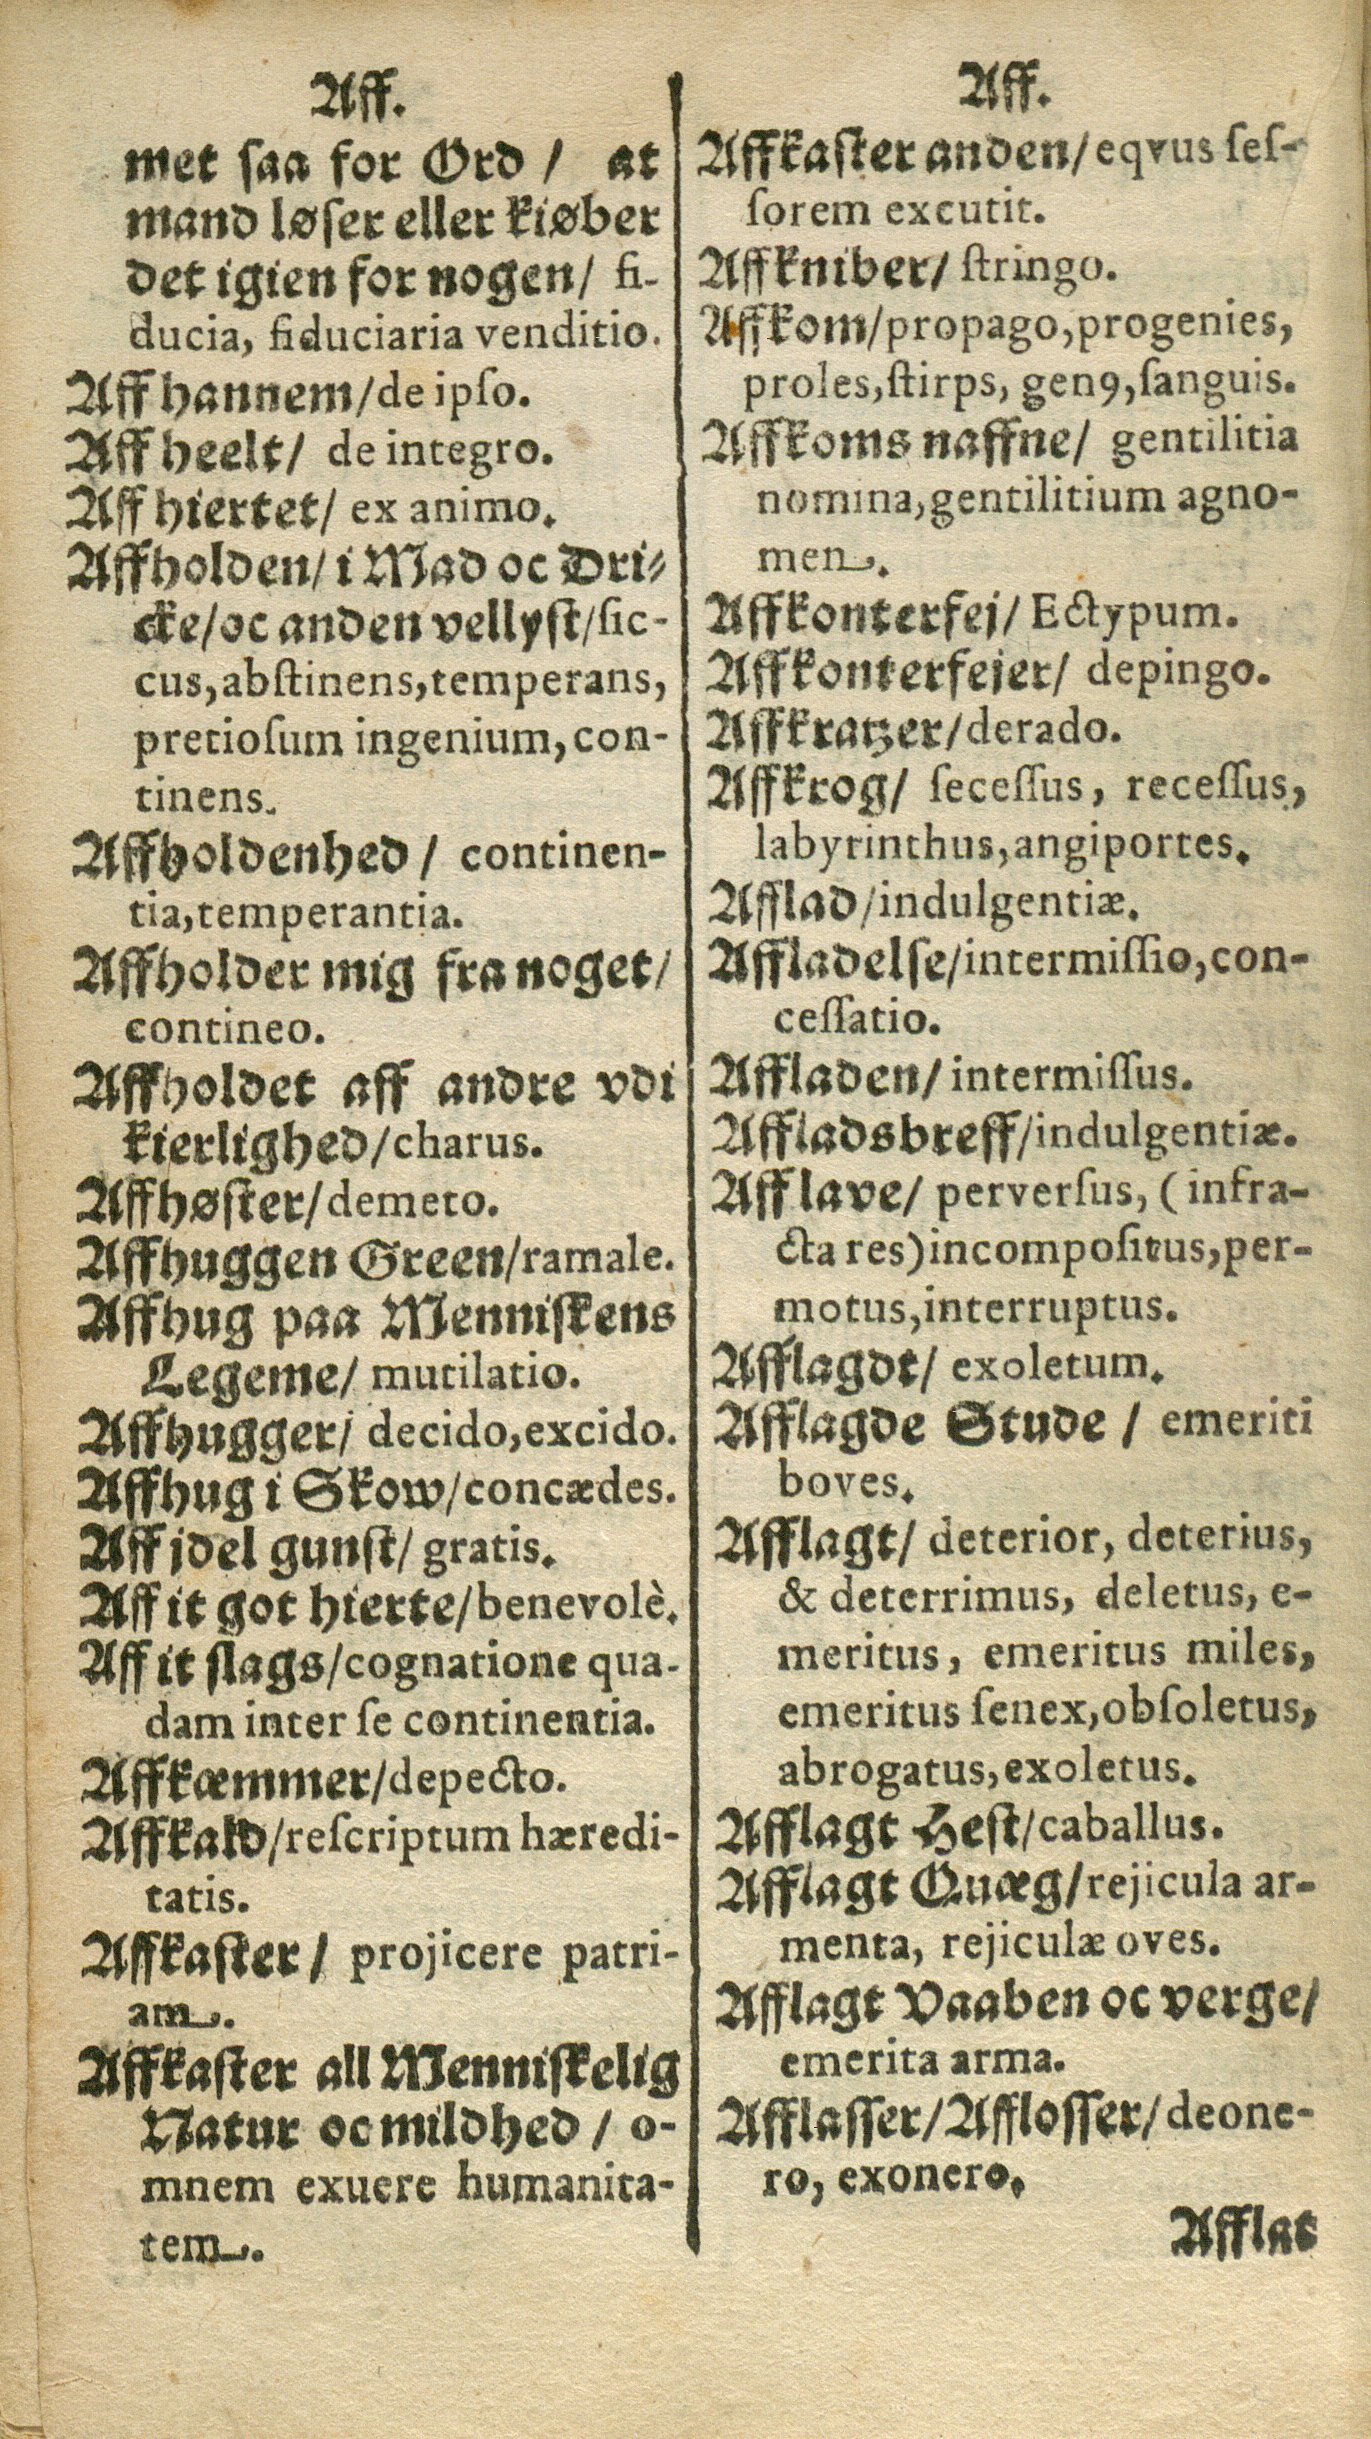 Aff.
met ſaa for Ord / at
mand løſer eller kiøber
det igien for nogen/ fi-
ducia, fiduciaria venditio.
Aff hannem/de ipſo.
Aff heelt/ de integro.
Aff hiertet/ ex animo.
Affholden/ i Mad oc Dri-
cke/oc anden vellyſt/ſic-
cus,abſtinens,temperans,
pretioſum ingenium,con-
tinens.
Affholdenhed / continen-
tia,temperantia.
Affholder mig fra noget/
contineo.
Affholdet aff andre vdi
kierlighed/charus.
Affhøſter/demeto.
Affhuggen Green/ramale.
Affhug paa Menniſkens
Legeme/ mutilatio.
Affhugger/ decido,excido.
Affhug i Skow/concædes.
Aff jdel gunſt/ gratis.
Aff it got hierte/benevolè.
Aff it ſlags/cognatione qua-
dam inter ſe continentia.
Affkæmmer/depecto.
Affkald/reſcriptum hæredi-
tatis.
Affkaſter / projicere patri-
am.
Affkaſter all Menniſkelig
Natur oc mildhed / o-
mnem exuere humanita-
tem.
Aff.
Affkaſter anden/eqvus ſeſ-
ſorem excutit.
Affkniber/ ſtringo.
Affkom/propago,progenies,
proles,ſtirps, genꝰ,ſanguis.
Affkoms naffne/ gentilitia
nomina,gentilitium agno-
men.
Affkonterfej/ Ectypum.
Affkonterfejer/ depingo.
Affkratzer/derado.
Affkrog/ ſeceſſus, receſſus,
labyrinthus,angiportes.
Afflad/indulgentiæ.
Affladelſe/intermiſſio,con-
ceſſatio.
Affladen/ intermiſſus.
Affladsbreff/indulgentiæ.
Aff lave/ perverſus, (infra-
cta res)incompoſitus,per-
motus,interruptus.
Afflagdt/ exoletum.
Afflagde Stude / emeriti
boves.
Afflagt/ deterior, deterius,
& deterrimus, deletus, e-
meritus, emeritus miles,
emeritus ſenex,obſoletus,
abrogatus,exoletus.
Afflagt Heſt/caballus.
Afflagt Quæg/rejicula ar-
menta, rejiculæ oves.
Afflagt Vaaben oc verge/
emerita arma.
Afflaſſer/Affloſſer/deone-
ro, exonero.
Afflat